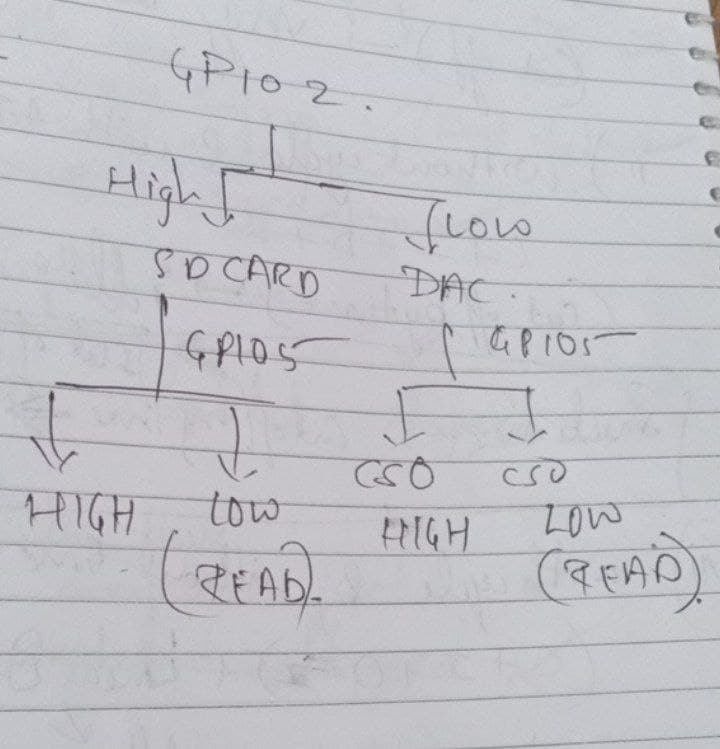 GPIO 2.
High LOW
SD CARD DAC.
GPIO5 GPIO5
CS0 CS0
HIGH LOW HIGH LOW
(READ). (READ).